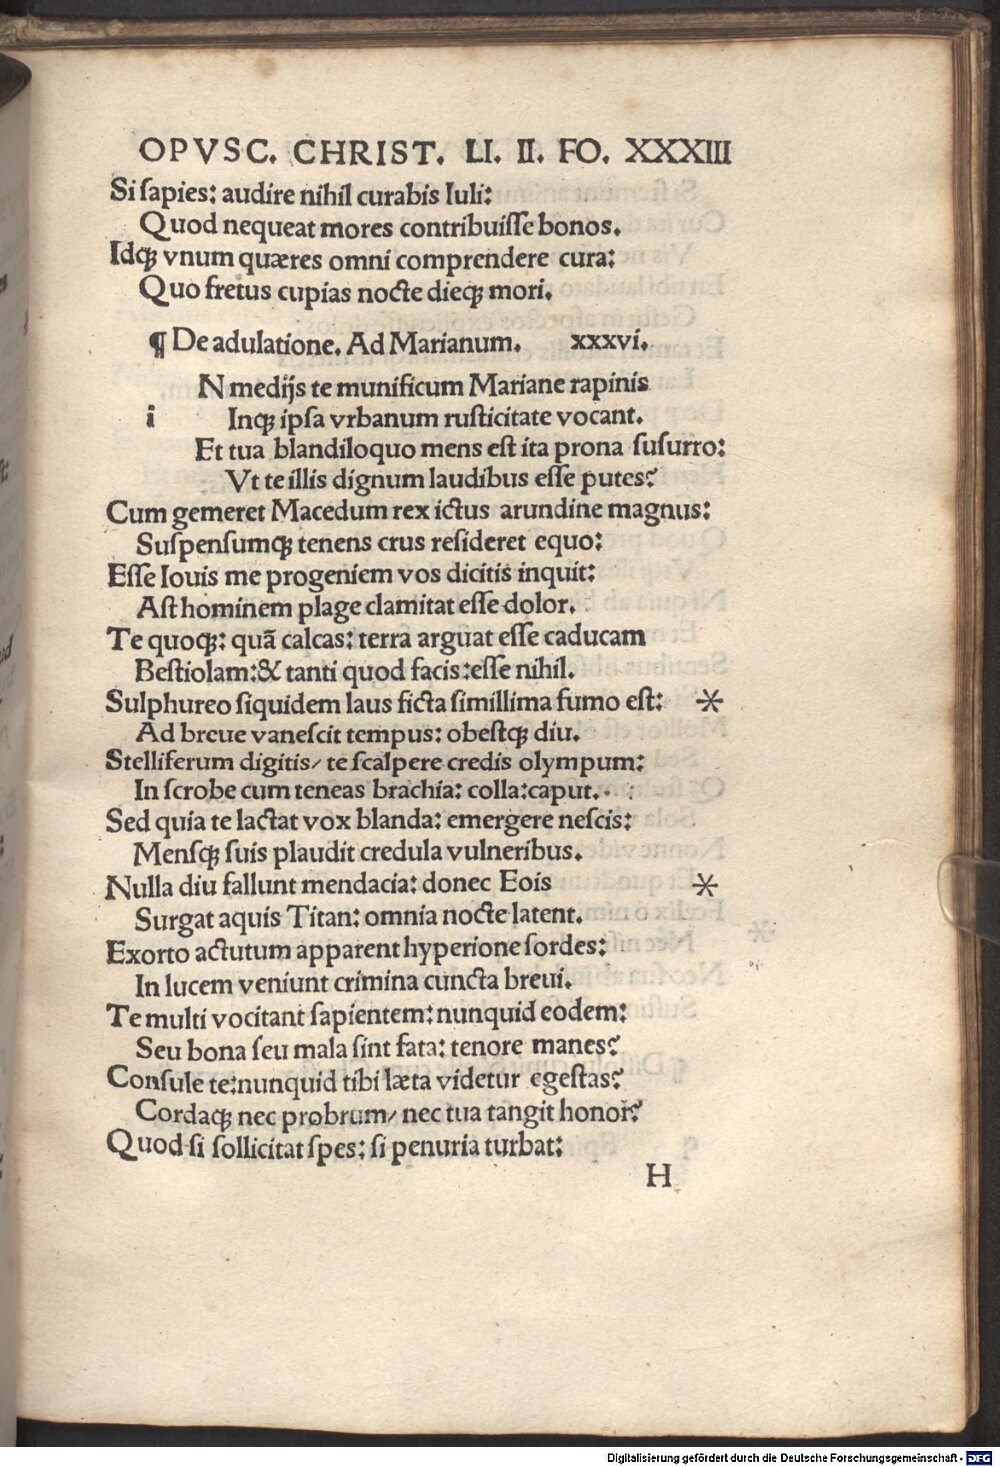 OPVSC. CHRIST. LI. II. FO. XXXIII
Si sapies: audire nihil curabis Iuli:
Quod nequeat mores contribuisse bonos.
Idqꝫ vnum quæres omni comprendere cura:
Quo fretus cupias nocte dieqꝫ mori.
¶ De adulatione. Ad Marianum. xxxvi.
N medijs te munificum Mariane rapinis
i Inqꝫ ipsa vrbanum rusticitate vocant.
Et tua blandiloquo mens est ita prona susurro:
Vt te illis dignum laudibus esse putes?
Cum gemeret Macedum rex ictus arundine magnus:
Suspensumqꝫ tenens crus resideret equo:
Esse Iouis me progeniem vos dicitis inquit:
Ast hominem plage clamitat esse dolor.
Te quoqꝫ: quā calcas: terra arguat esse caducam
Bestiolam: & tanti quod facis: esse nihil.
Sulphureo siquidem laus ficta simillima fumo est: *
Ad breue vanescit tempus: obestqꝫ diu.
Stelliferum digitis/ te scalpere credis olympum:
In scrobe cum teneas brachia: colla: caput.
Sed quia te lactat vox blanda: emergere nescis:
Mensqꝫ suis plaudit credula vulneribus.
Nulla diu fallunt mendacia: donec Eois *
Surgat aquis Titan: omnia nocte latent.
Exorto actutum apparent hyperione sordes:
In lucem veniunt crimina cuncta breui.
Te multi vocitant sapientem: nunquid eodem:
Seu bona seu mala sint fata: tenore manes?
Consule te: nunquid tibi læta videtur egestas?
Cordaqꝫ nec probrum/ nec tua tangit honor?
Quod si sollicitat spes: si penuria turbat:
H
Digitalisierung gefördert durch die Deutsche Forschungsgemeinschaft - DFG